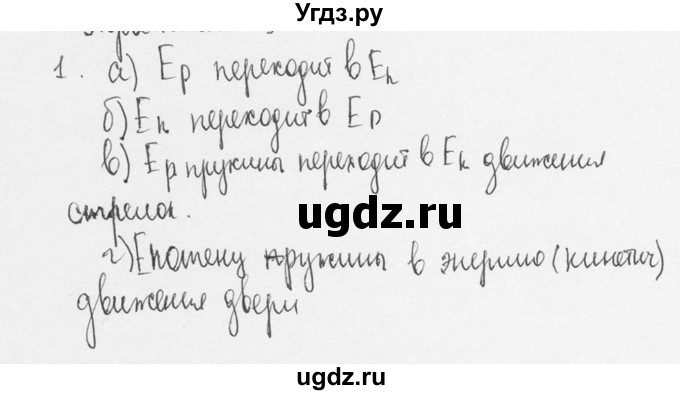 Угдз.ру
1. а) Ep переходит в Ek
б) Ek переходит в Ep
в) Ep пружины переходит в Ek движения
стрелок.
ugdz.ru
г) Eпотенц пружины в энергию (кинетич)
движения двери
ugdz.ru